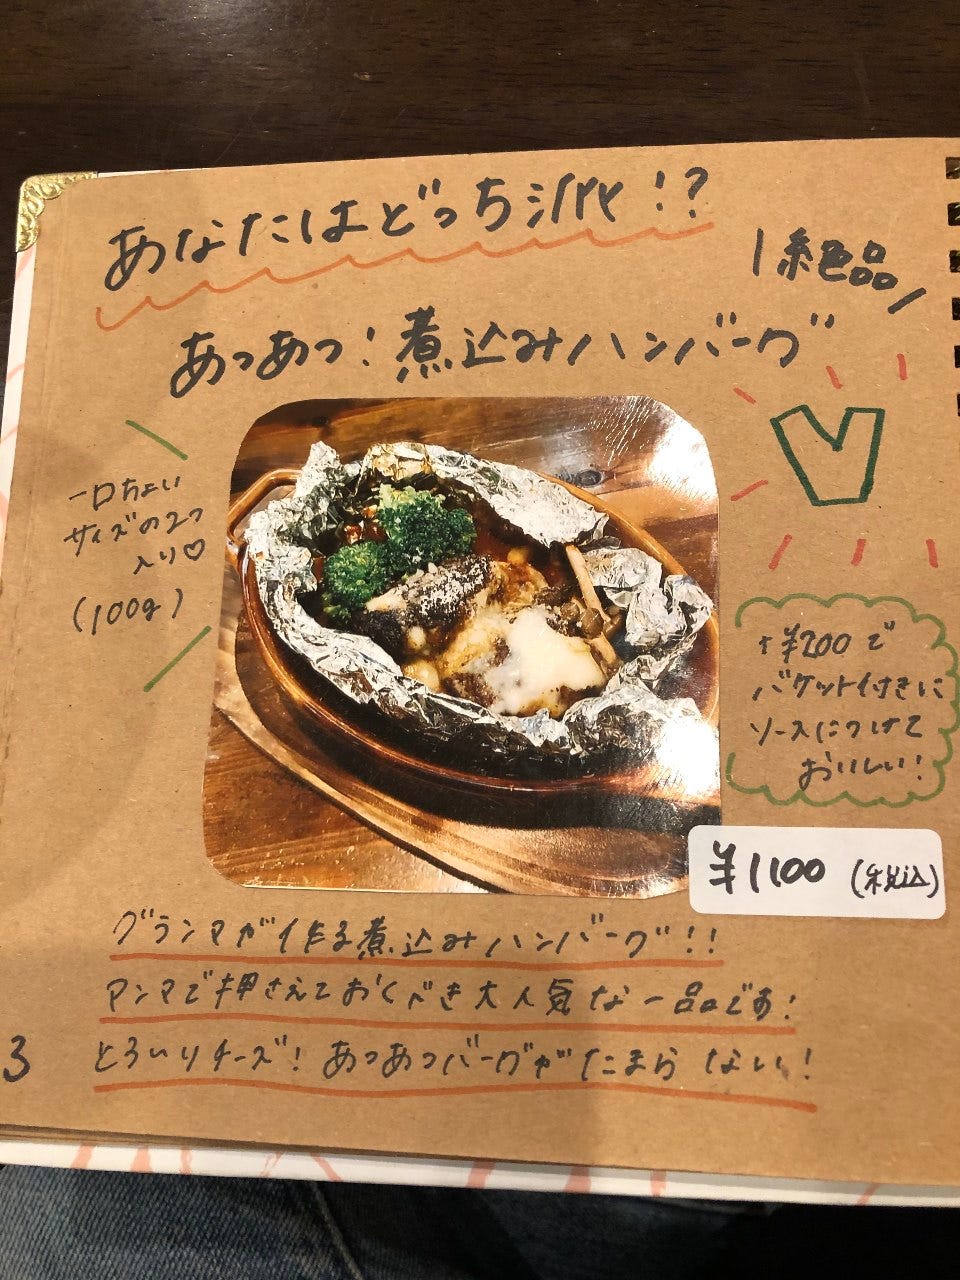 あなたはどっち派!?
絶品
あつあつ!煮込みハンバーグ
一口ちょい
サイズの2つ
入り♡
(100g)
+¥200で
バケット付きに
ソースにつけて
おいしい!
¥1100 (税込)
グランマが作る煮込みハンバーグ!!
マンマで押さえておくべき大人気な一品です!
とろ〜りチーズ!あつあつバーグがたまらない!
3